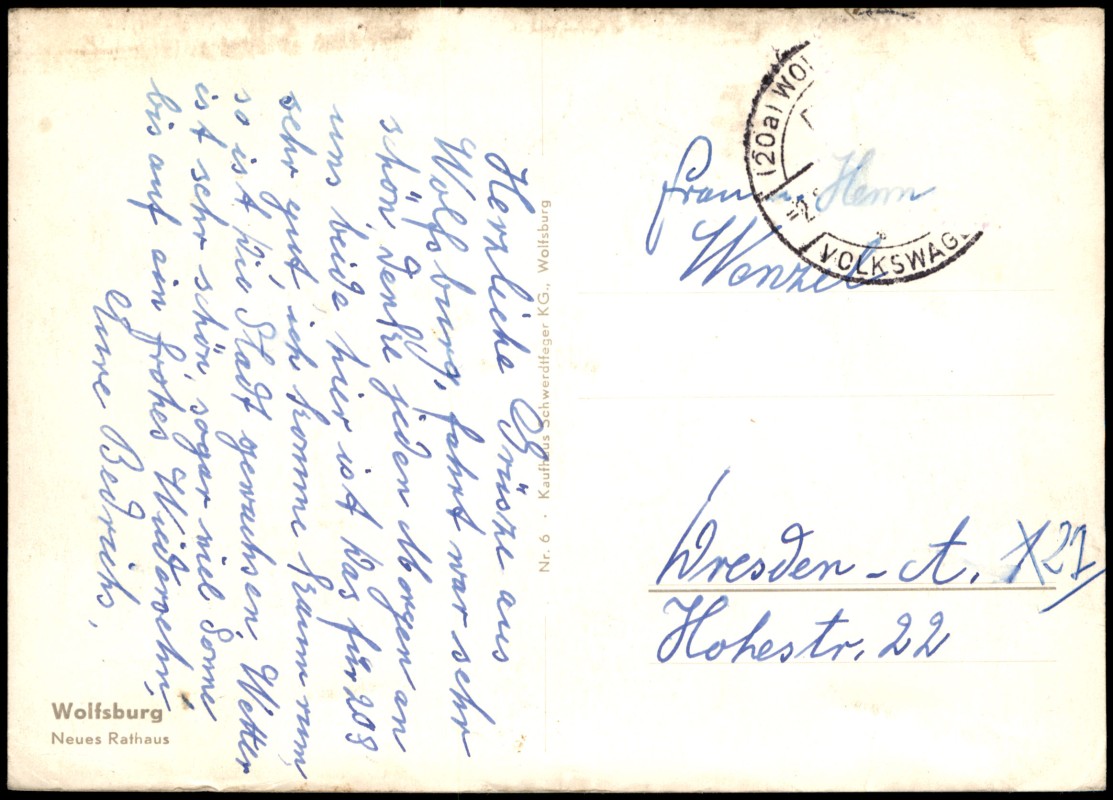 Herzliche Grüsze aus
Wolfsburg, fahrt war sehr
schön denke jeden Morgen an
uns beide, hier ist das für 203
sehr gut, ich komme kaum rum,
so ist die Stadt gewachsen, Wetter
ist sehr schön, sogar viel Sonne
bis auf ein frohes Wiedersehn,
Eure Bedrichs,
Wolfsburg
Neues Rathaus
Nr. 6 · Kaufhaus Schwerdtfeger KG., Wolfsburg
(20a) WOL
VOLKSWAG
Frau Herrn
Wenzel
Dresden-A. X21
Hohestr. 22